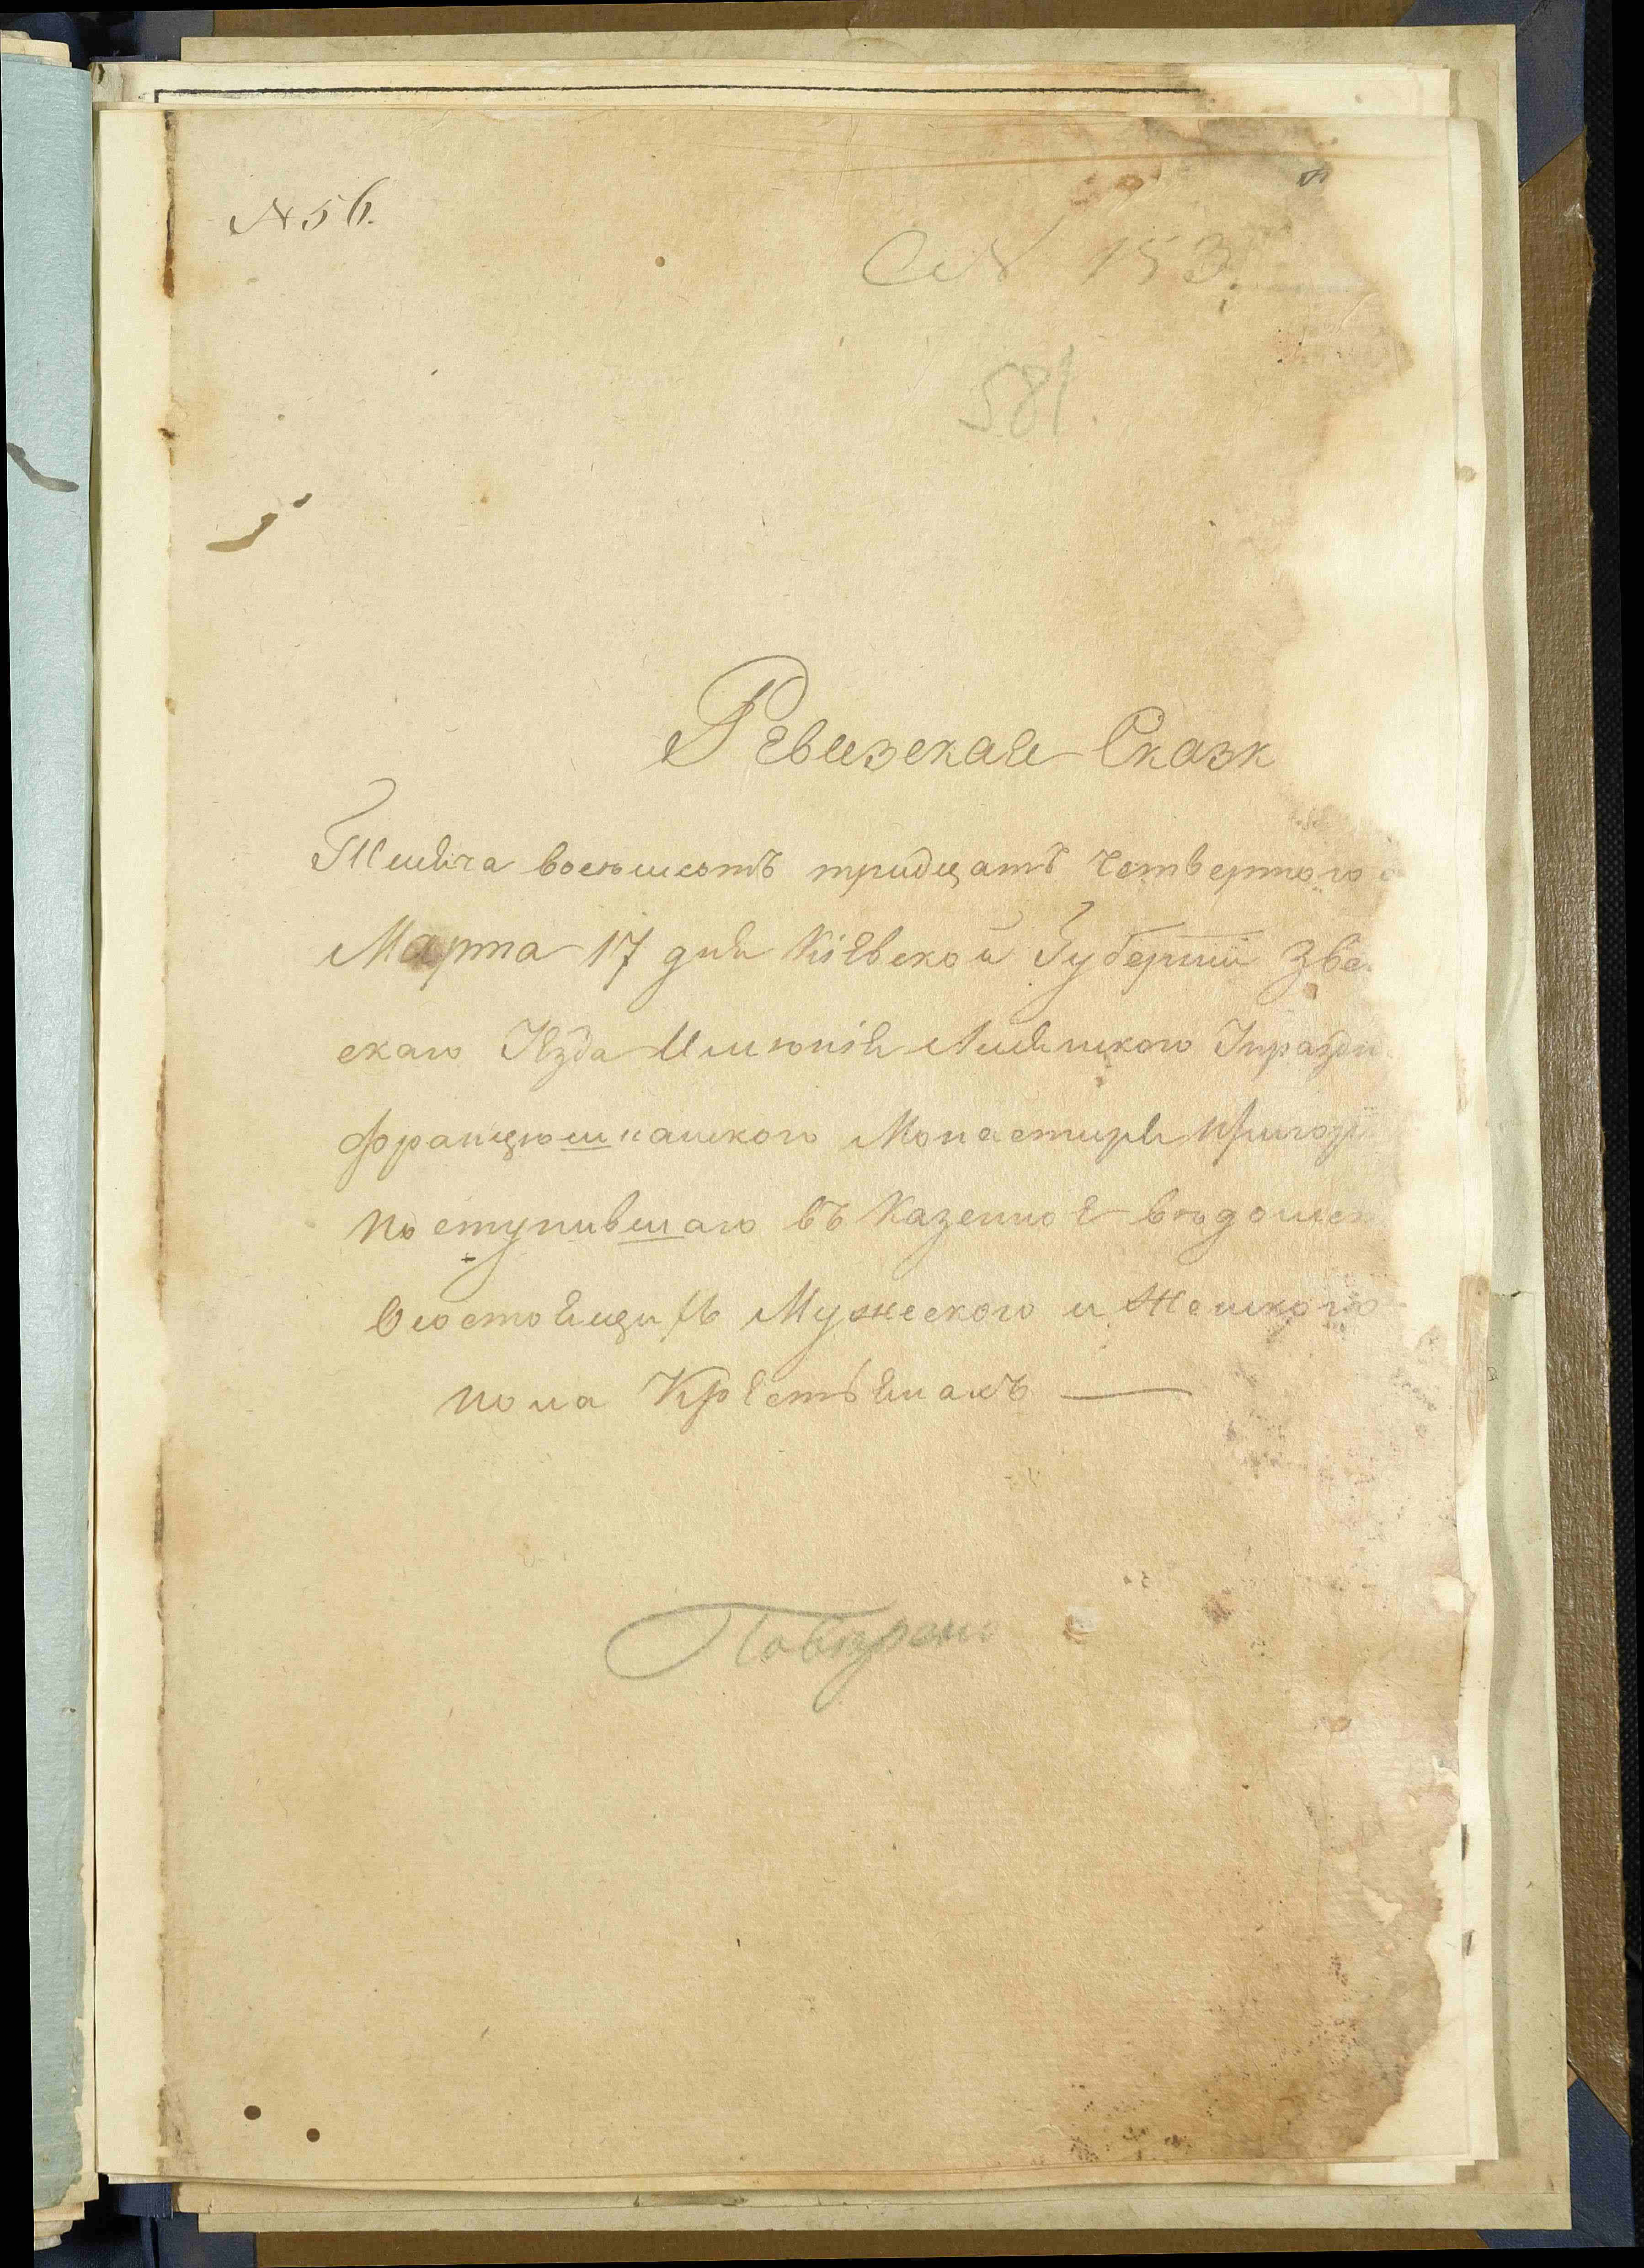 № 56.
№ 153.
581.
Ревизская Сказк
Тысяча восемьсотъ тридцать четвертого
Марта 17 дня Кіевской Губерніи Зве
скаго Уѣзда Имѣнія Лысянского Упраздн
францышканского Монастыря
поступившаго въ Казенное вѣдомст
О состоящихъ Мужеского и Женского
пола Крестьянахъ —